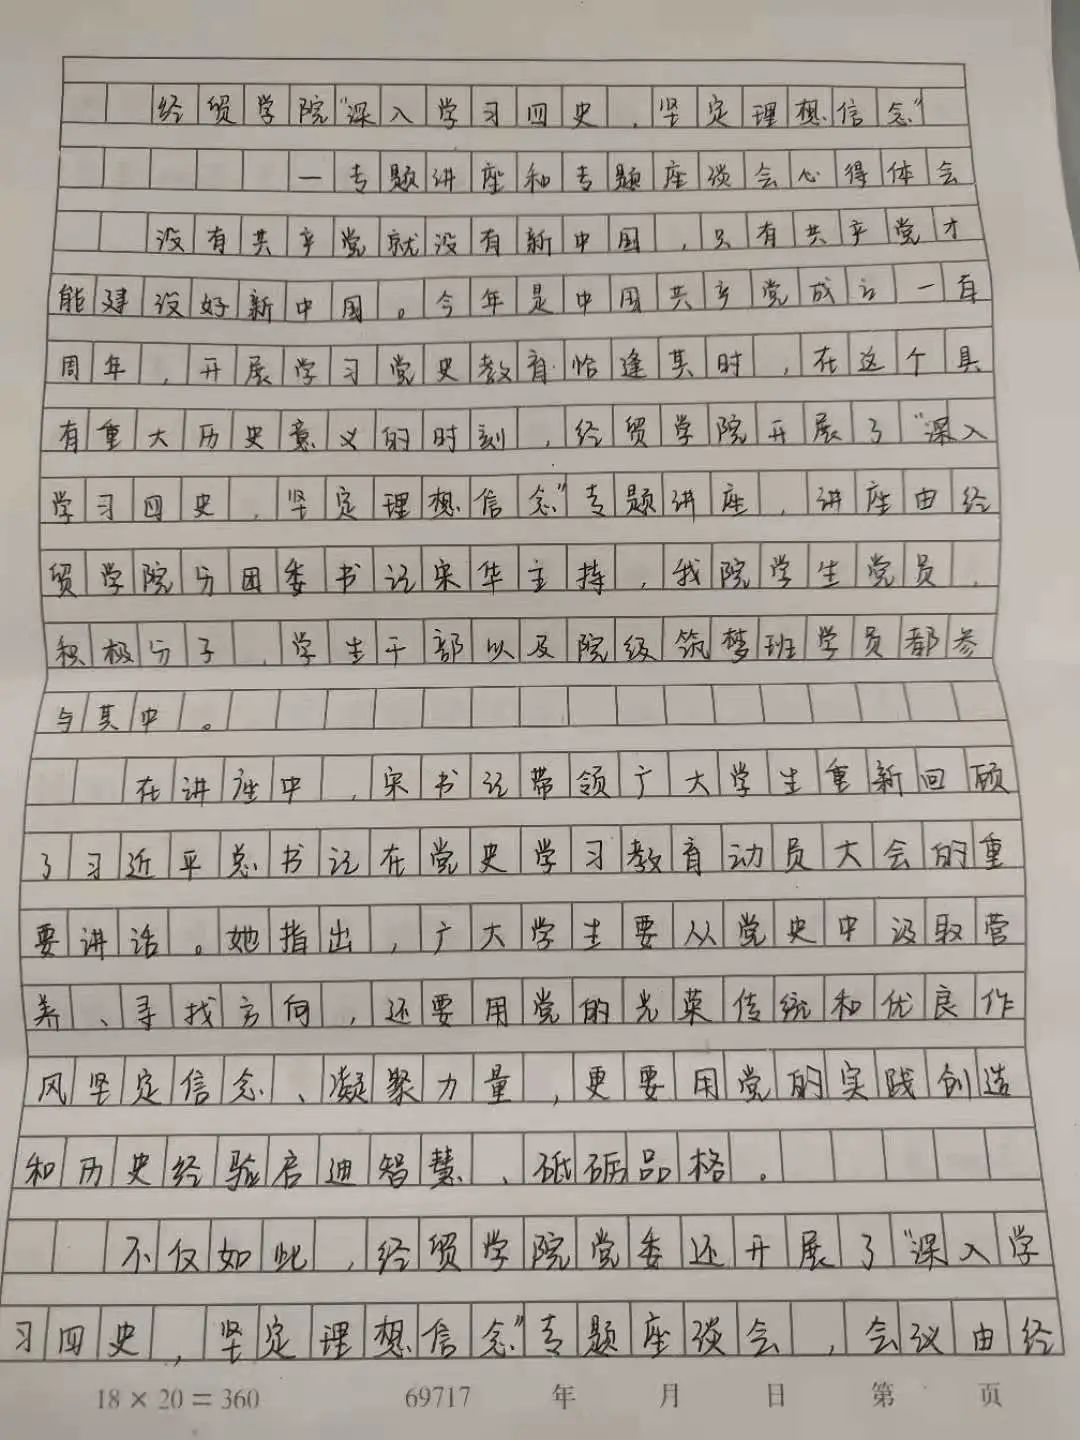 经贸学院“深入学习四史，坚定理想信念”
一专题讲座和专题座谈会心得体会
没有共产党就没有新中国，只有共产党才
能建设好新中国。今年是中国共产党成立一百
周年，开展学习党史教育恰逢其时，在这个具
有重大历史意义的时刻，经贸学院开展了“深入
学习四史，坚定理想信念”专题讲座，讲座由经
贸学院分团委书记宋华主持，我院学生党员，
积极分子，学生干部以及院级筑梦班学员都参
与其中。
在讲座中，宋书记带领广大学生重新回顾
了习近平总书记在党史学习教育动员大会的重
要讲话。她指出，广大学生要从党史中汲取营
养、寻找方向，还要用党的光荣传统和优良作
风坚定信念、凝聚力量，更要用党的实践创造
和历史经验启迪智慧、砥砺品格。
不仅如此，经贸学院党委还开展了“深入学
习四史，坚定理想信念”专题座谈会，会议由经
18×20=360 69717 年 月 日 第 页